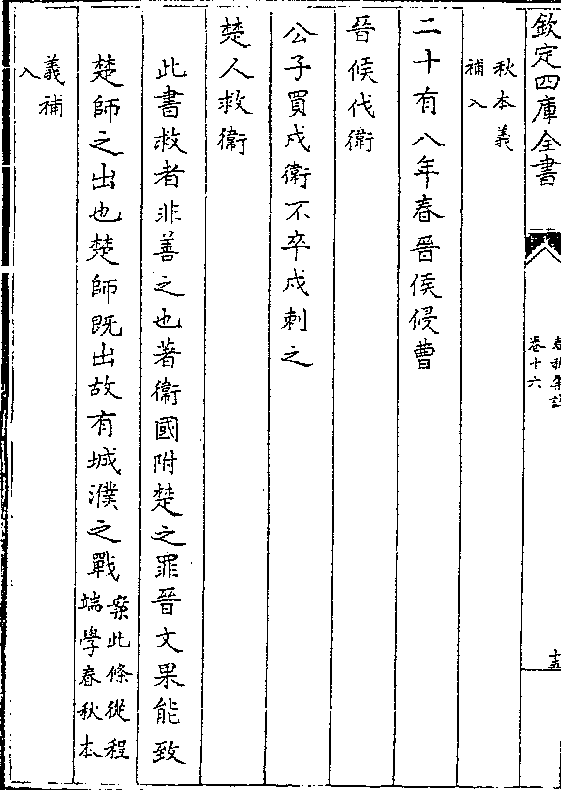 欽定四庫全書
春秋集註
卷十六
十五
秋本義
補入
二十有八年春晉侯侵曹
晉侯伐衛
公子買戍衛不卒戍刺之
楚人救衛
此書救者非善之也著衛國附楚之罪晉文果能致
楚師之出也楚師既出故有城濮之戰
案此條從程
端學春秋本
義補
入